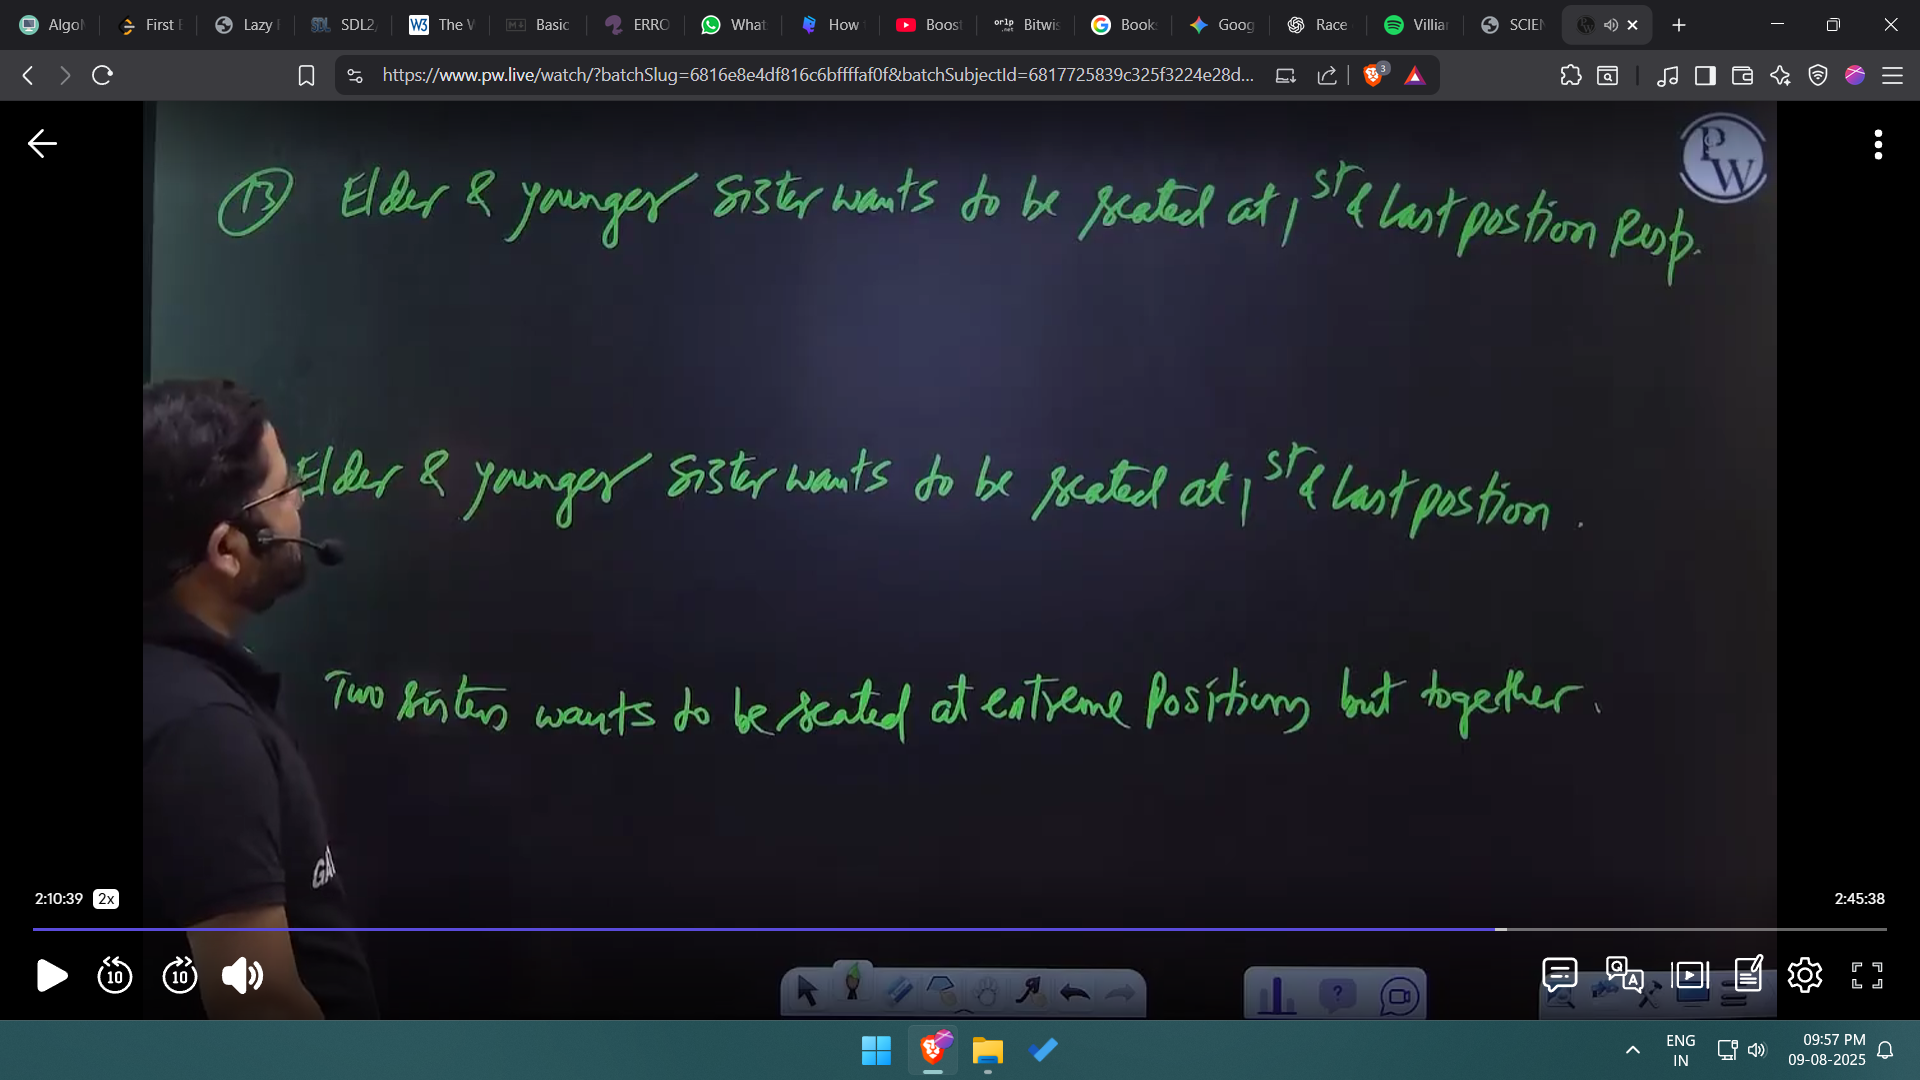 Algo
First E
Lazy
SDL2,
The V
Basic
ERRO
What
How
Boost
Bitwis
Book
Goog
Race
Villian
SCIEN
https://www.pw.live/watch/?batchSlug=6816e8e4df816c6bffffaf0f&batchSubjectId=6817725839c325f3224e28d...
3
PW
13 Elder & younger sister wants to be seated at 1st & last postion Resp.
Elder & younger sister wants to be seated at 1st & last postion .
Two sisters wants to be seated at extreme positions but together .
GA
2:10:39 2x
2:45:38
10 10
ENG
IN
09:57 PM
09-08-2025